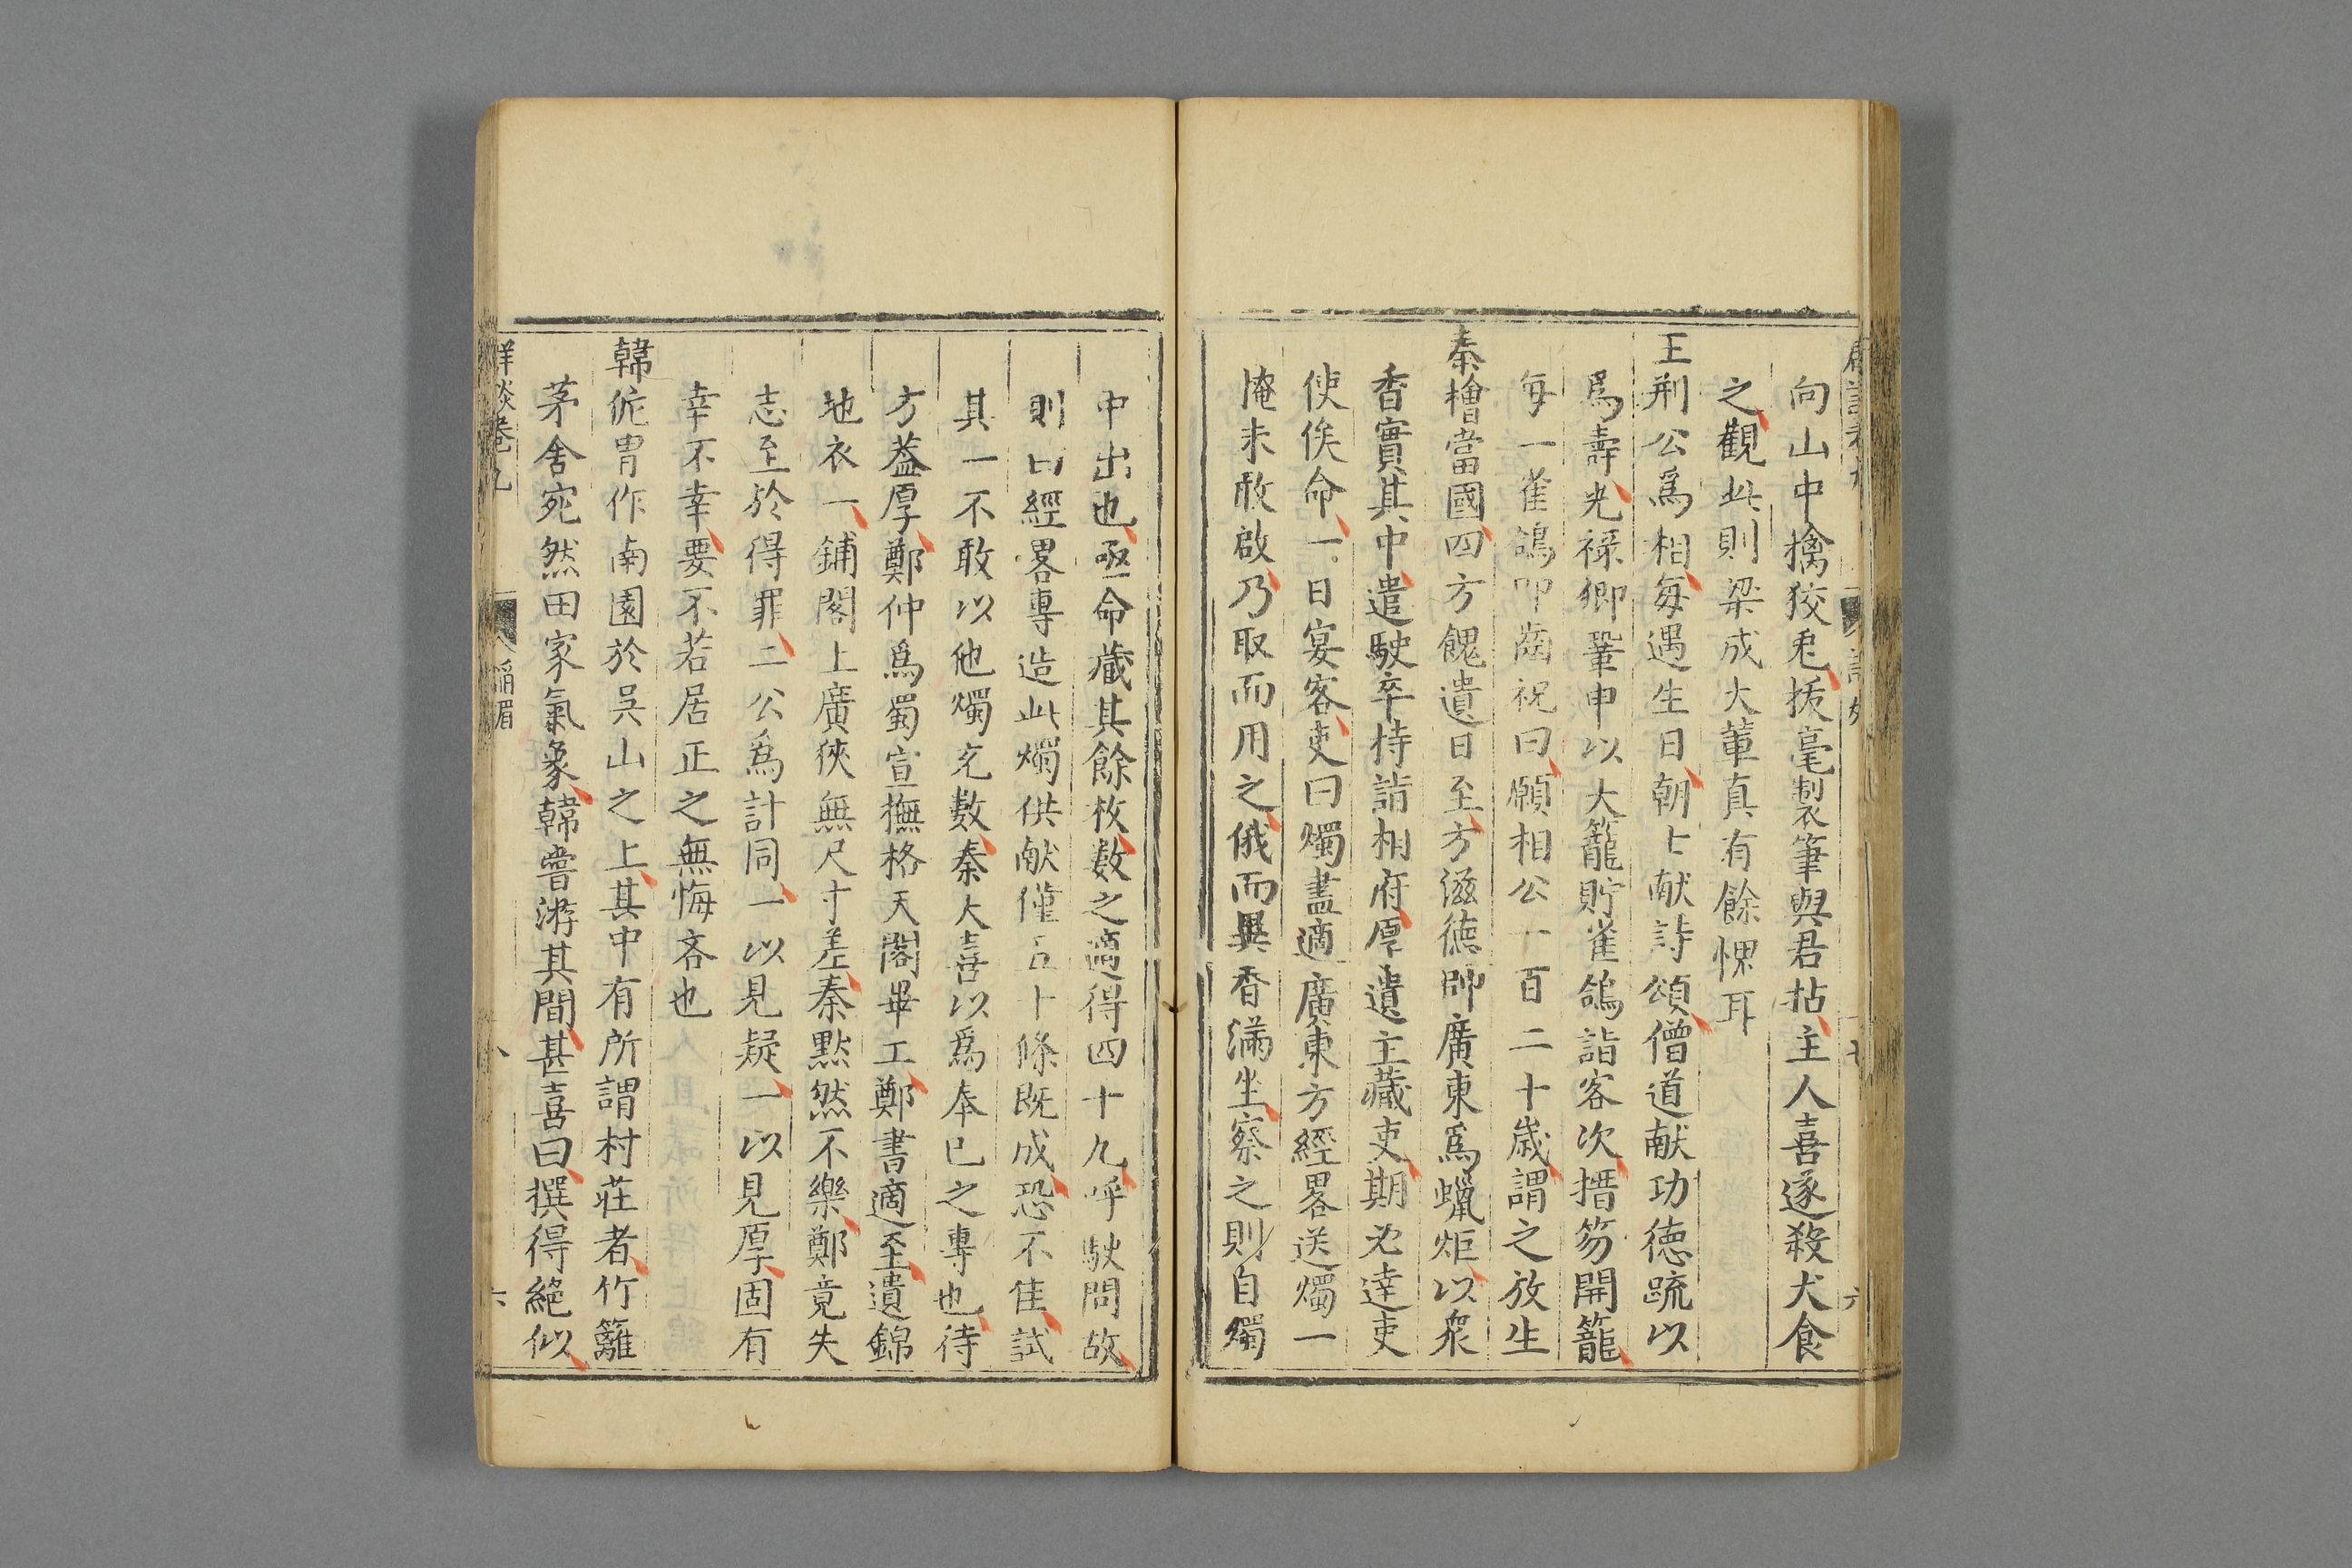 向山中擒狡兎拔毫製筆與君拈主人喜遂殺犬食
之觀此則梁成大軰真有餘愧耳
王荆公爲相每遇生日朝士献詩頌僧道献功德疏以
爲壽光禄卿鞏申以大籠貯雀鴿詣客次搢笏開籠
每一雀鴿叩齒祝曰願相公一百二十歲謂之放生
秦檜當國四方餽遺日至方滋德帥廣東爲蠟炬以衆
香實其中遣駛卒持詣相府厚遺主藏吏期必達吏
使俟命一日宴客吏曰燭盡適廣東方經畧送燭一
掩未敢啟乃取而用之俄而異香滿坐察之則自燭
中出也亟命藏其餘枚數之適得四十九呼駛問故
則曰經畧專造此燭供献僅五十條既成恐不佳試
其一不敢以他燭充數秦大喜以爲奉已之專也待
方益厚鄭仲爲蜀宣撫格天閣畢工鄭書適至遺錦
地衣一鋪閣上廣狹無尺寸差秦黙然不樂鄭竟失
志至於得罪二公爲計同一以見疑一以見厚固有
幸不幸要不若居正之無悔吝也
韓侂胄作南園於吳山之上其中有所謂村莊者竹籬
茅舍宛然田家氣象韓嘗游其間甚喜曰撰得絕似